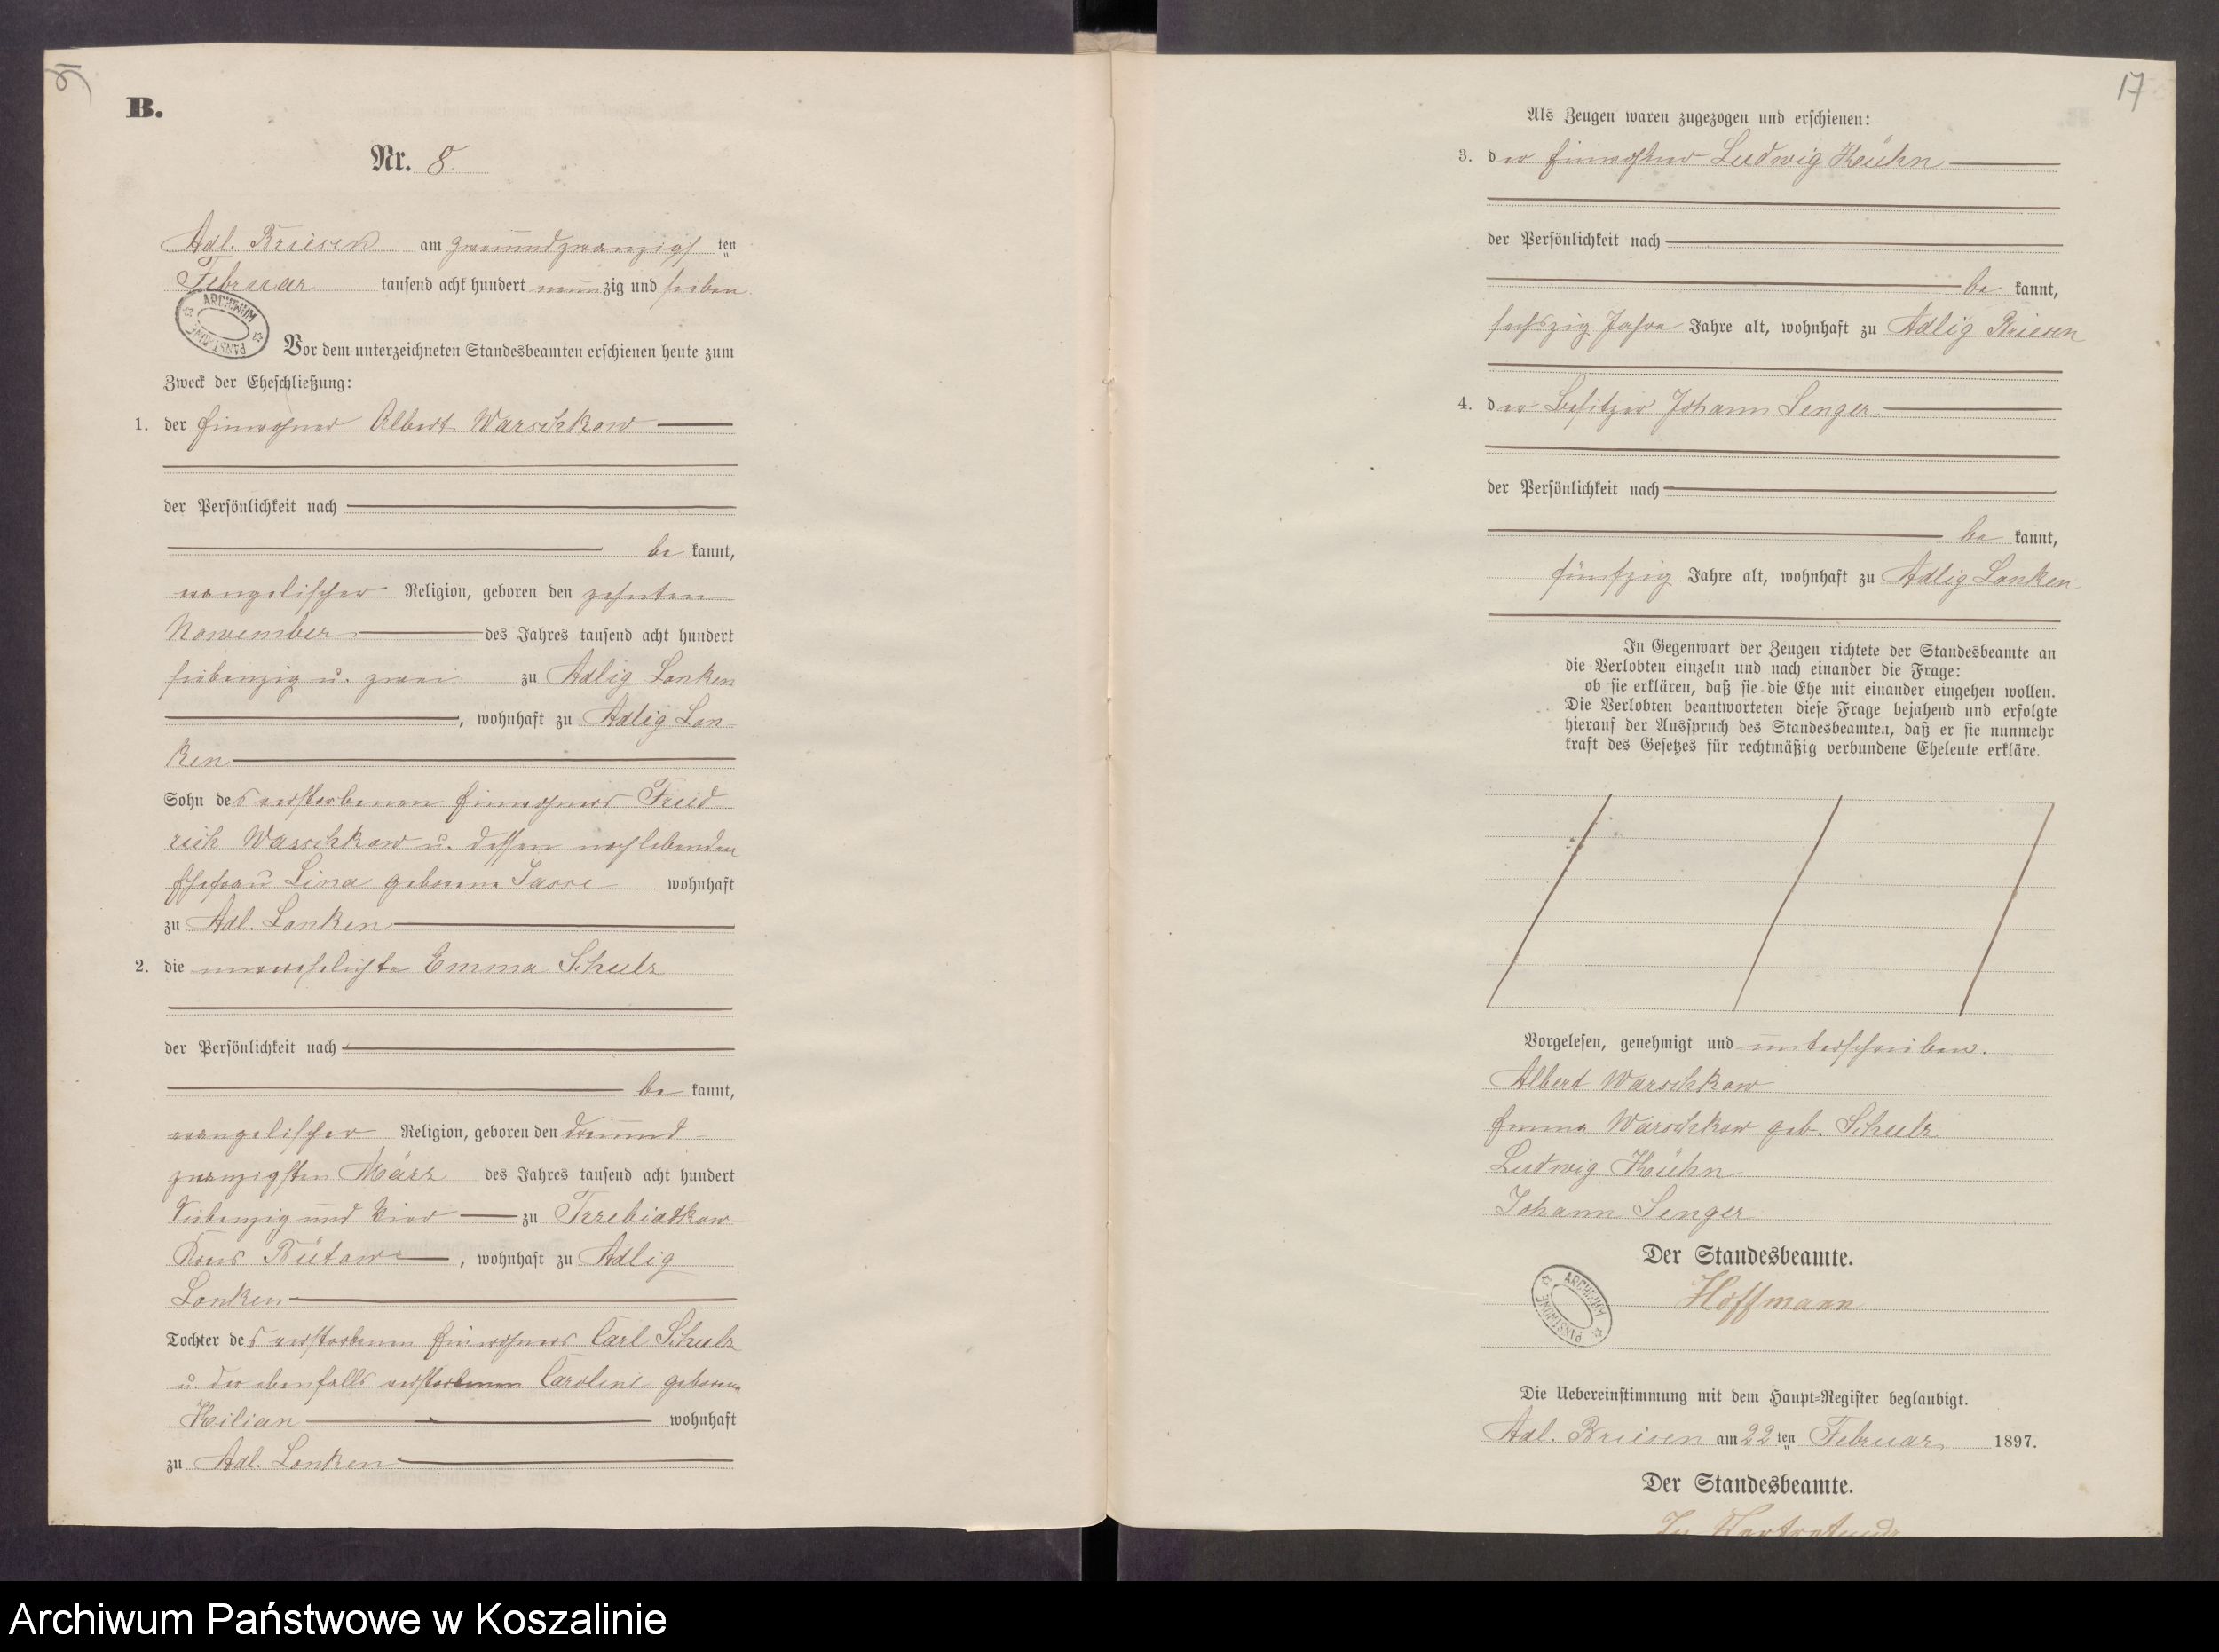 B.
Nr. 8.
Adl. Briesen am zweiundzwanzigsten
Februar tausend acht hundert neunzig und sieben.
ARCHIWUM PAŃSTWOWE
Vor dem unterzeichneten Standesbeamten erschienen heute zum
Zweck der Eheschließung:
1. der Einwohner Albert Warschkow
der Persönlichkeit nach
be kannt,
evangelischer Religion, geboren den zehnten
November des Jahres tausend acht hundert
siebenzig u. zwei zu Adlig Lonken
, wohnhaft zu Adlig Lon-
ken
Sohn des verstorbenen Einwohners Fried
rich Warschkow u. dessen nochlebenden
Ehefrau Lina geborene wohnhaft
zu Adl. Lonken
2. die unverehelichte Emma Schulz
der Persönlichkeit nach
be kannt,
evangelischer Religion, geboren den dreiund-
zwanzigsten März des Jahres tausend acht hundert
siebenzig und vier zu Trzebiatkow
Kreis Bütow, wohnhaft zu Adlig
Lonken
Tochter des verstorbenen Einwohners Carl Schulz
u. der ebenfalls verstorbenen Caroline geborene
Kilian wohnhaft
zu Adl. Lonken
17
Als Zeugen waren zugezogen und erschienen:
3. der Einwohner Ludwig Kühn
der Persönlichkeit nach
be kannt,
sechszig Jahre Jahre alt, wohnhaft zu Adlig Briesen
4. der Besitzer Johann Senger
der Persönlichkeit nach
be kannt,
fünfzig Jahre alt, wohnhaft zu Adlig Lonken
In Gegenwart der Zeugen richtete der Standesbeamte an
die Verlobten einzeln und nach einander die Frage:
ob sie erklären, daß sie die Ehe mit einander eingehen wollen.
Die Verlobten beantworteten diese Frage bejahend und erfolgte
hierauf der Ausspruch des Standesbeamten, daß er sie nunmehr
kraft des Gesetzes für rechtmäßig verbundene Eheleute erkläre.
Vorgelesen, genehmigt und unterschrieben.
Albert Warschkow
Emma Warschkow geb. Schulz
Ludwig Kühn
Johann Senger
Der Standesbeamte.
Hoffmann
ARCHIWUM PAŃSTWOWE
Die Uebereinstimmung mit dem Haupt-Register beglaubigt.
Adl. Briesen am 22ten Februar 1897.
Der Standesbeamte.
In Vertretung
Archiwum Państwowe w Koszalinie